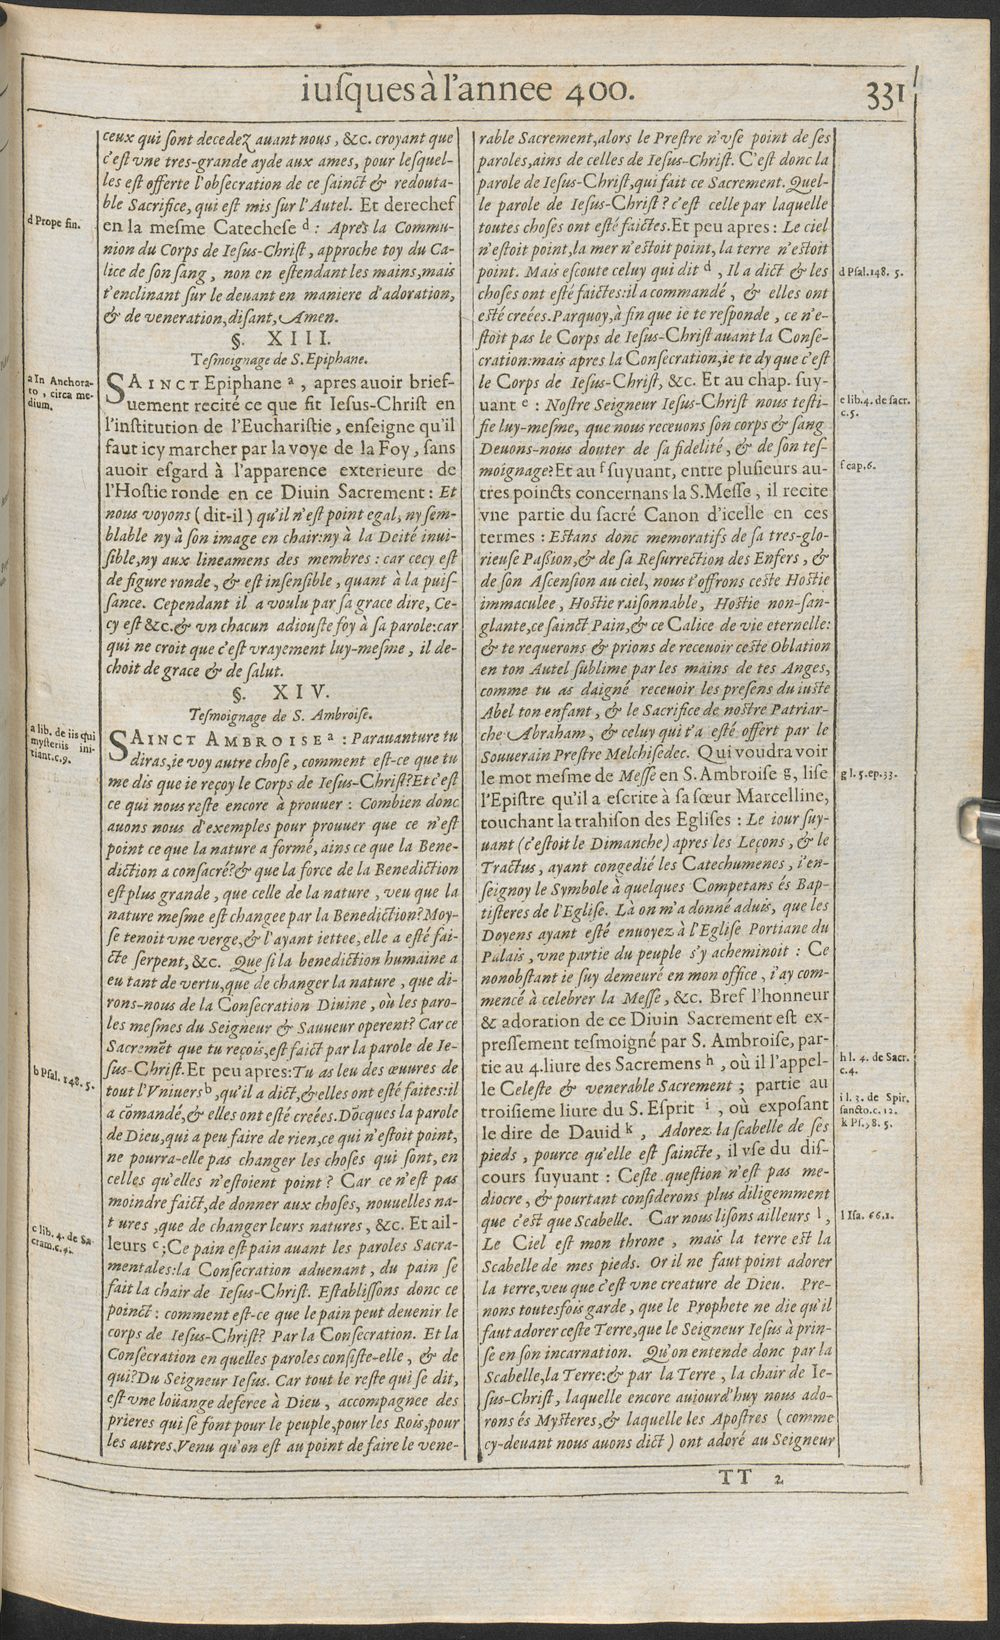 iuſques à l'annee 400.
331
ceux qui ſont decedez auant nous, &c. croyant que
c'eſt vne tres-grande ayde aux ames, pour leſquel-
les eſt offerte l'obſecration de ce ſainct & redouta-
ble Sacrifice, qui eſt mis ſur l'Autel. Et derechef
en la meſme Catecheſe d : Apres la Commu-
nion du Corps de Ieſus-Chriſt, approche toy du Ca-
lice de ſon ſang, non en eſtendant les mains, mais
t'enclinant ſur le deuant en maniere d'adoration,
& de veneration, diſant, Amen.
§. XIII.
Teſmoignage de S. Epiphane.
SAINCT Epiphane a, apres auoir brief-
uement recité ce que fit Ieſus-Chriſt en
l'inſtitution de l'Euchariſtie, enſeigne qu'il
faut icy marcher par la voye de la Foy, ſans
auoir eſgard à l'apparence exterieure de
l'Hoſtie ronde en ce Diuin Sacrement : Et
nous voyons (dit-il) qu'il n'eſt point egal, ny ſem-
blable ny à ſon image en chair: ny à la Deité inui-
ſible, ny aux lineamens des membres : car cecy eſt
de figure ronde, & eſt inſenſible, quant à la puiſ-
ſance. Cependant il a voulu par ſa grace dire, Ce-
cy eſt &c. & vn chacun adiouſte foy à ſa parole: car
qui ne croit que c'eſt vrayement luy-meſme, il de-
choit de grace & de ſalut.
§. XIV.
Teſmoignage de S. Ambroiſe.
SAINCT AMBROISE a : Parauanture tu
diras, ie voy autre choſe, comment eſt-ce que tu
me dis que ie reçoy le Corps de Ieſus-Chriſt? Et c'eſt
ce qui nous reſte encore à prouuer : Combien donc
auons nous d'exemples pour prouuer que ce n'eſt
point ce que la nature a formé, ains ce que la Bene-
diction a conſacré? & que la force de la Benediction
eſt plus grande, que celle de la nature, veu que la
nature meſme eſt changee par la Benediction? Moy-
ſe tenoit vne verge, & l'ayant iettee, elle a eſté fai-
cte ſerpent, &c. Que ſi la benediction humaine a
eu tant de vertu, que de changer la nature, que di-
rons-nous de la Conſecration Diuine, où les paro-
les meſmes du Seigneur & Sauueur operent? Car ce
Sacremẽt que tu reçois, eſt faict par la parole de Ie-
ſus-Chriſt. Et peu apres: Tu as leu des œuures de
tout l'Vniuers b, qu'il a dict, & elles ont eſté faites: il
a cõmandé, & elles ont eſté creées. Dõcques la parole
de Dieu, qui a peu faire de rien, ce qui n'eſtoit point,
ne pourra-elle pas changer les choſes qui ſont, en
celles qu'elles n'eſtoient point? Car ce n'eſt pas
moindre faict, de donner aux choſes, nouuelles na-
tures, que de changer leurs natures, &c. Et ail-
leurs c; Ce pain eſt pain auant les paroles Sacra-
mentales: la Conſecration aduenant, du pain ſe
fait la chair de Ieſus-Chriſt. Eſtabliſſons donc ce
poinct : comment eſt-ce que le pain peut deuenir le
corps de Ieſus-Chriſt? Par la Conſecration. Et la
Conſecration en quelles paroles conſiſte-elle, & de
qui? Du Seigneur Ieſus. Car tout le reſte qui ſe dit,
eſt vne loüange deferee à Dieu, accompagnee des
prieres qui ſe font pour le peuple, pour les Rois, pour
les autres. Venu qu'on eſt au point de faire le vene-
rable Sacrement, alors le Preſtre n'vſe point de ſes
paroles, ains de celles de Ieſus-Chriſt. C'eſt donc la
parole de Ieſus-Chriſt, qui fait ce Sacrement. Quel-
le parole de Ieſus-Chriſt? c'eſt celle par laquelle
toutes choſes ont eſté faictes. Et peu apres : Le ciel
n'eſtoit point, la mer n'eſtoit point, la terre n'eſtoit
point. Mais eſcoute celuy qui dit d, Il a dict & les
choſes ont eſté faictes: il a commandé, & elles ont
eſté creées. Parquoy, à fin que ie te reſponde, ce n'e-
ſtoit pas le Corps de Ieſus-Chriſt auant la Conſe-
cration: mais apres la Conſecration, ie te dy que c'eſt
le Corps de Ieſus-Chriſt, &c. Et au chap. ſuy-
uant e : Noſtre Seigneur Ieſus-Chriſt nous teſti-
fie luy-meſme, que nous receuons ſon corps & ſang
Deuons-nous douter de ſa fidelité, & de ſon teſ-
moignage? Et au f ſuyuant, entre pluſieurs au-
tres poincts concernans la S. Meſſe, il recite
vne partie du ſacré Canon d'icelle en ces
termes : Eſtans donc memoratifs de ſa tres-glo-
rieuſe Paſſion, & de ſa Reſurrection des Enfers, &
de ſon Aſcenſion au ciel, nous t'offrons ceſte Hoſtie
immaculee, Hoſtie raiſonnable, Hoſtie non-ſan-
glante, ce ſainct Pain, & ce Calice de vie eternelle:
& te requerons & prions de receuoir ceſte Oblation
en ton Autel ſublime par les mains de tes Anges,
comme tu as daigné receuoir les preſens du iuſte
Abel ton enfant, & le Sacrifice de noſtre Patriar-
che Abraham, & celuy qui t'a eſté offert par le
Souuerain Preſtre Melchiſedec. Qui voudra voir
le mot meſme de Meſſe en S. Ambroiſe g, liſe
l'Epiſtre qu'il a eſcrite à ſa ſœur Marcelline,
touchant la trahiſon des Egliſes : Le iour ſuy-
uant (c'eſtoit le Dimanche) apres les Leçons, & le
Tractus, ayant congedié les Catechumenes, i'en-
ſeignoy le Symbole à quelques Competans és Bap-
tiſteres de l'Egliſe. Là on m'a donné aduis, que les
Doyens ayant eſté enuoyez à l'Egliſe Portiane du
Palais, vne partie du peuple s'y acheminoit : Ce
nonobſtant ie ſuy demeuré en mon office, i'ay com-
mencé à celebrer la Meſſe, &c. Bref l'honneur
& adoration de ce Diuin Sacrement eſt ex-
preſſement teſmoigné par S. Ambroiſe, par-
tie au 4. liure des Sacremens h, où il l'appel-
le Celeſte & venerable Sacrement ; partie au
troiſieme liure du S. Eſprit i, où expoſant
le dire de Dauid k, Adorez la ſcabelle de ſes
pieds, pource qu'elle eſt ſaincte, il vſe du diſ-
cours ſuyuant : Ceſte queſtion n'eſt pas me-
diocre, & pourtant conſiderons plus diligemment
que c'eſt que Scabelle. Car nous liſons ailleurs l,
Le Ciel eſt mon throne, mais la terre eſt la
Scabelle de mes pieds. Or il ne faut point adorer
la terre, veu que c'eſt vne creature de Dieu. Pre-
nons toutesfois garde, que le Prophete ne die qu'il
faut adorer ceſte Terre, que le Seigneur Ieſus à prin-
ſe en ſon incarnation. Qu'on entende donc par la
Scabelle, la Terre: & par la Terre, la chair de Ie-
ſus-Chriſt, laquelle encore auiourd'huy nous ado-
rons és Myſteres, & laquelle les Apoſtres (comme
cy-deuant nous auons dict) ont adoré au Seigneur
TT 2
d Prope fin.
a In Anchora-
to, circa me-
dium.
a lib. de iis qui
myſteriis ini-
tiant. c. 9.
b Pſal. 148. 5.
c lib. 4. de Sa-
cram. c. 4.
d Pſal. 148. 5.
e lib. 4. de ſacr.
c. 5.
f cap. 6.
g l. 5. ep. 33.
h l. 4. de Sacr.
c. 4.
i l. 3. de Spir.
ſancto. c. 12.
k Pſ. 98. 5.
l Iſa. 66. 1.